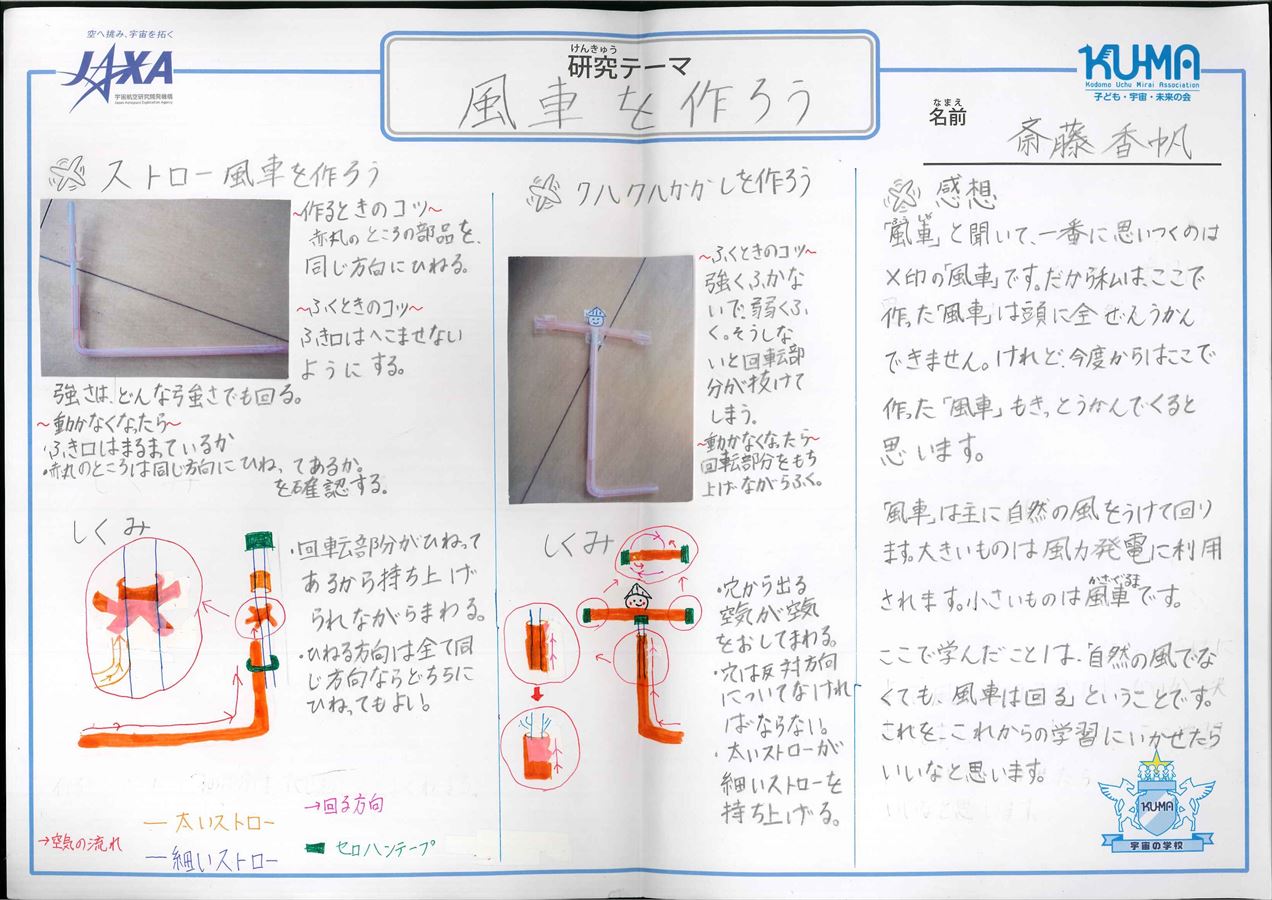 空へ挑み、宇宙を拓く
JAXA
宇宙航空研究開発機構
Japan Aerospace Exploration Agency
けんきゅう
研究テーマ
風車を作ろう
KU-MA
Kodomo Uchu Mirai Association
子ども・宇宙・未来の会
なまえ
名前
斎藤香帆
ストロー風車を作ろう
~作るときのコツ~
赤丸のところの部品を、
同じ方向にひねる。
~ふくときのコツ~
ふき口はへこませない
ようにする。
強さは、どんな弓強さでも回る。
~動かなくなったら~
・ふき口はまるまっているか
・赤丸のところは同じ方向にひねってあるか。
を確認する。
しくみ
・回転部分がひねって
あるから持ち上げ
られながらまわる。
・ひねる方向は全て同
じ方向ならどちらに
ひねってもよい!
→空気の流れ
ー太いストロー
ー細いストロー
→回る方向
セロハンテープ
クルクルかかしを作ろう
~ふくときのコツ~
強くふかな
いで、弱くふ
く。そうしな
いと回転部
分が抜けて
しまう。
~動かなくなったら~
回転部分をもち
上げながらふく。
しくみ
・穴から出る
空気が空気
をおしてまわる。
・穴は反対方向
についてなけれ
ばならない。
・太いストローが
細いストローを
持ち上げる。
感想
「風車」と聞いて、一番に思いつくのは
×印の「風車」です。だから私は、ここで
作った「風車」は頭に全ぜんうかん
できません。けれど、今度からはここで
作った「風車」もきっとうかんでくると
思います。
「風車」は主に自然の風をうけて回り
ます。大きいものは風力発電に利用
されます。小さいものは風車です。
かざぐるま
ここで学んだことは、「自然の風でな
くても、風車は回る」ということです。
これを、これからの学習にいかせたら
いいなと思います。
KUMA
宇宙の学校